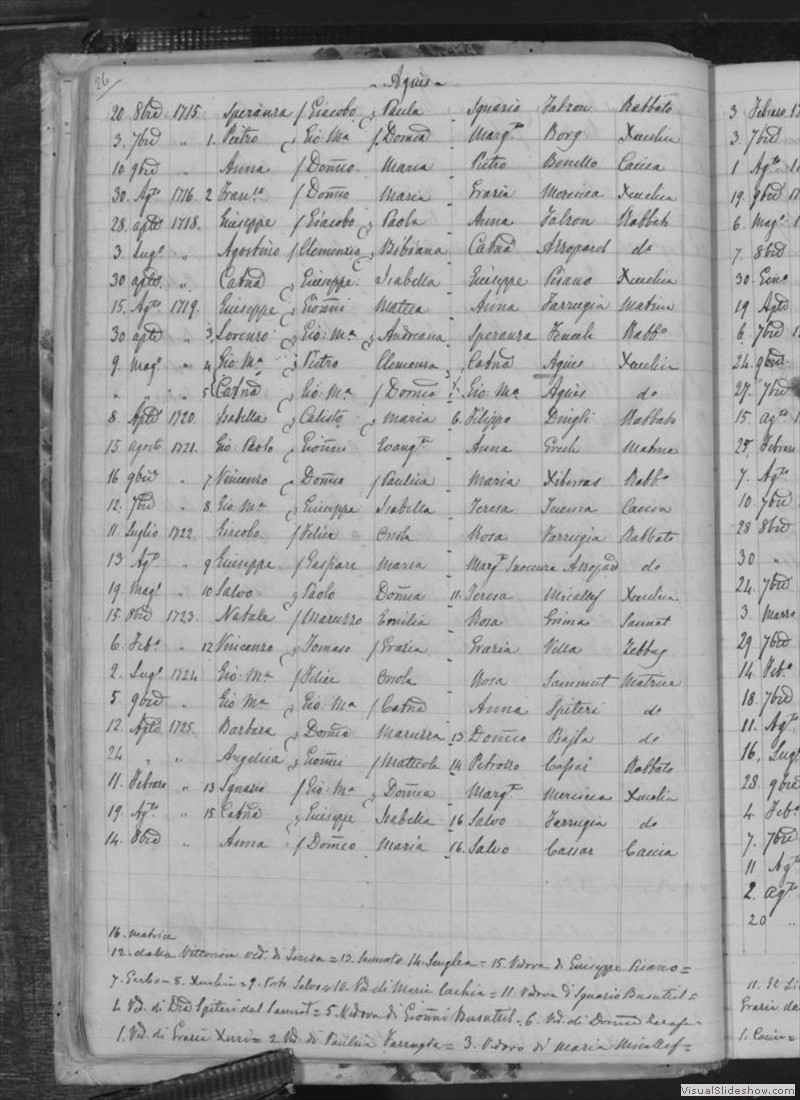 26
Agius
20 8bre 1715. Speranza f Giacobo, Paula Ignazio Falzon Rabbato
3. 7bre " 1. Pietro Gio: Mª f Domca Margta Borg Xeuchia
10 9bre " Anna f Domco Maria Pietro Bonello Caccia
30. Agto 1716. 2 Franco f Domco Maria Grazia Mercieca Xeuchia
28. aple 1718. Giuseppe f Giacobo Paola Anna Falzon Rabbato
3 Lugo " Agostino f Clemenzio Bibiana Catna Azzopard do
30 aple " Catna Giuseppe Isabella Giuseppe Pisano Xeuchia
15. Agto 1719. Giuseppe Gionni Mattea Anna Farrugia Matrice
30 aple " 3. Lorenzo Gio: Mª Andreana Speranza Zenech Rabbo
9. Mago " 4 Gio Mª Pietro Clemenza Catna Agius Xeuchia
" " " 5 Catna Gio: Mª f Domca Gio: Mª Agius do
8. 1720. Isabella Calisto maria 6. Filippo Dingli Rabbato
15. agosto 1721. Gio Paolo Gionni Evangta Anna Grech Matrice
16 9bre " 7 Vincenzo Domco f Paulica Maria Xiberras Rabbo
12. 7bre " 8. Gio: Mª Giuseppe Isabella Teresa Caccia
11 Luglio 1722. Giacobo f Felice Onola Rosa Farrugia Rabbato
13 Agto " 9 Giuseppe f Gaspare Maria Margta Azzopard do
19. Mago " 10 Salvo Paolo Domca 11. Teresa Micallef Xeuchia
15. 8bre 1723. Natale f Maruzzo Emilia Rosa Grima Sannat
6. Febo " 12 Vincenzo Tomaso f Grazia Grazia Vella Zebbug
2. Lugo 1724 Gio: Mª f Felice Onola Rosa Sammut Matrice
5. 9bre " Gio: Mª Gio: Mª f Catna Anna Spiteri do
12. 1725. Barbara Domco Maruzza 13 Domco Bajla do
24 " " Angelica Gionni f Matteola 14 Petrosso Cassar Rabbato
11. Febraro " 13 Ignazio f Gio: Mª Domca Margta Mercieca Xeuchia
19. Agto " 15 Catna Giuseppe Isabella 16 Salvo Farrugia do
14. 8bre " Anna f Domco Maria 16. Salvo Cassar Caccia
16. matrice
12. dalla Vittoriosa ved. di Teresa = 13. Sannat = 14. Senglea = 15. Vedova di Giuseppe Pisano =
7. Garbo = 8. Xeuchia = 9. Porto Salvo = 10. Vd. di Maria Cachia = 11. Vedova d'Ignazio Busuttil =
4. Vd. di Spiteri dal Sannat = 5. Vedova di Gionni Busuttil = 6. Ved. di
1. Ved. di Grazia Xerri = 2. Vd. di Paulica Farrugia = 3. Vedovo di Maria Micallef =
3 Febraro 17
3 7bre
1 Agto
19. 9bre 17
6. Mago
7. 8bre
30 Geno
19
6. 7bre
24. 9bre
27. 7bre
15. agto
25. Febraro
7. Agto
10 7bre
28 8bre
30 "
24. 7bre
3. Marzo
29 7bre
14 Febo
18. 7bre
11. Agto
16. Lugo
28. 9bre
4 Febo
7. 7bre
11 Agto
2. agto
20 "
Grazia
1. Caccia =
VisualSlideshow.com